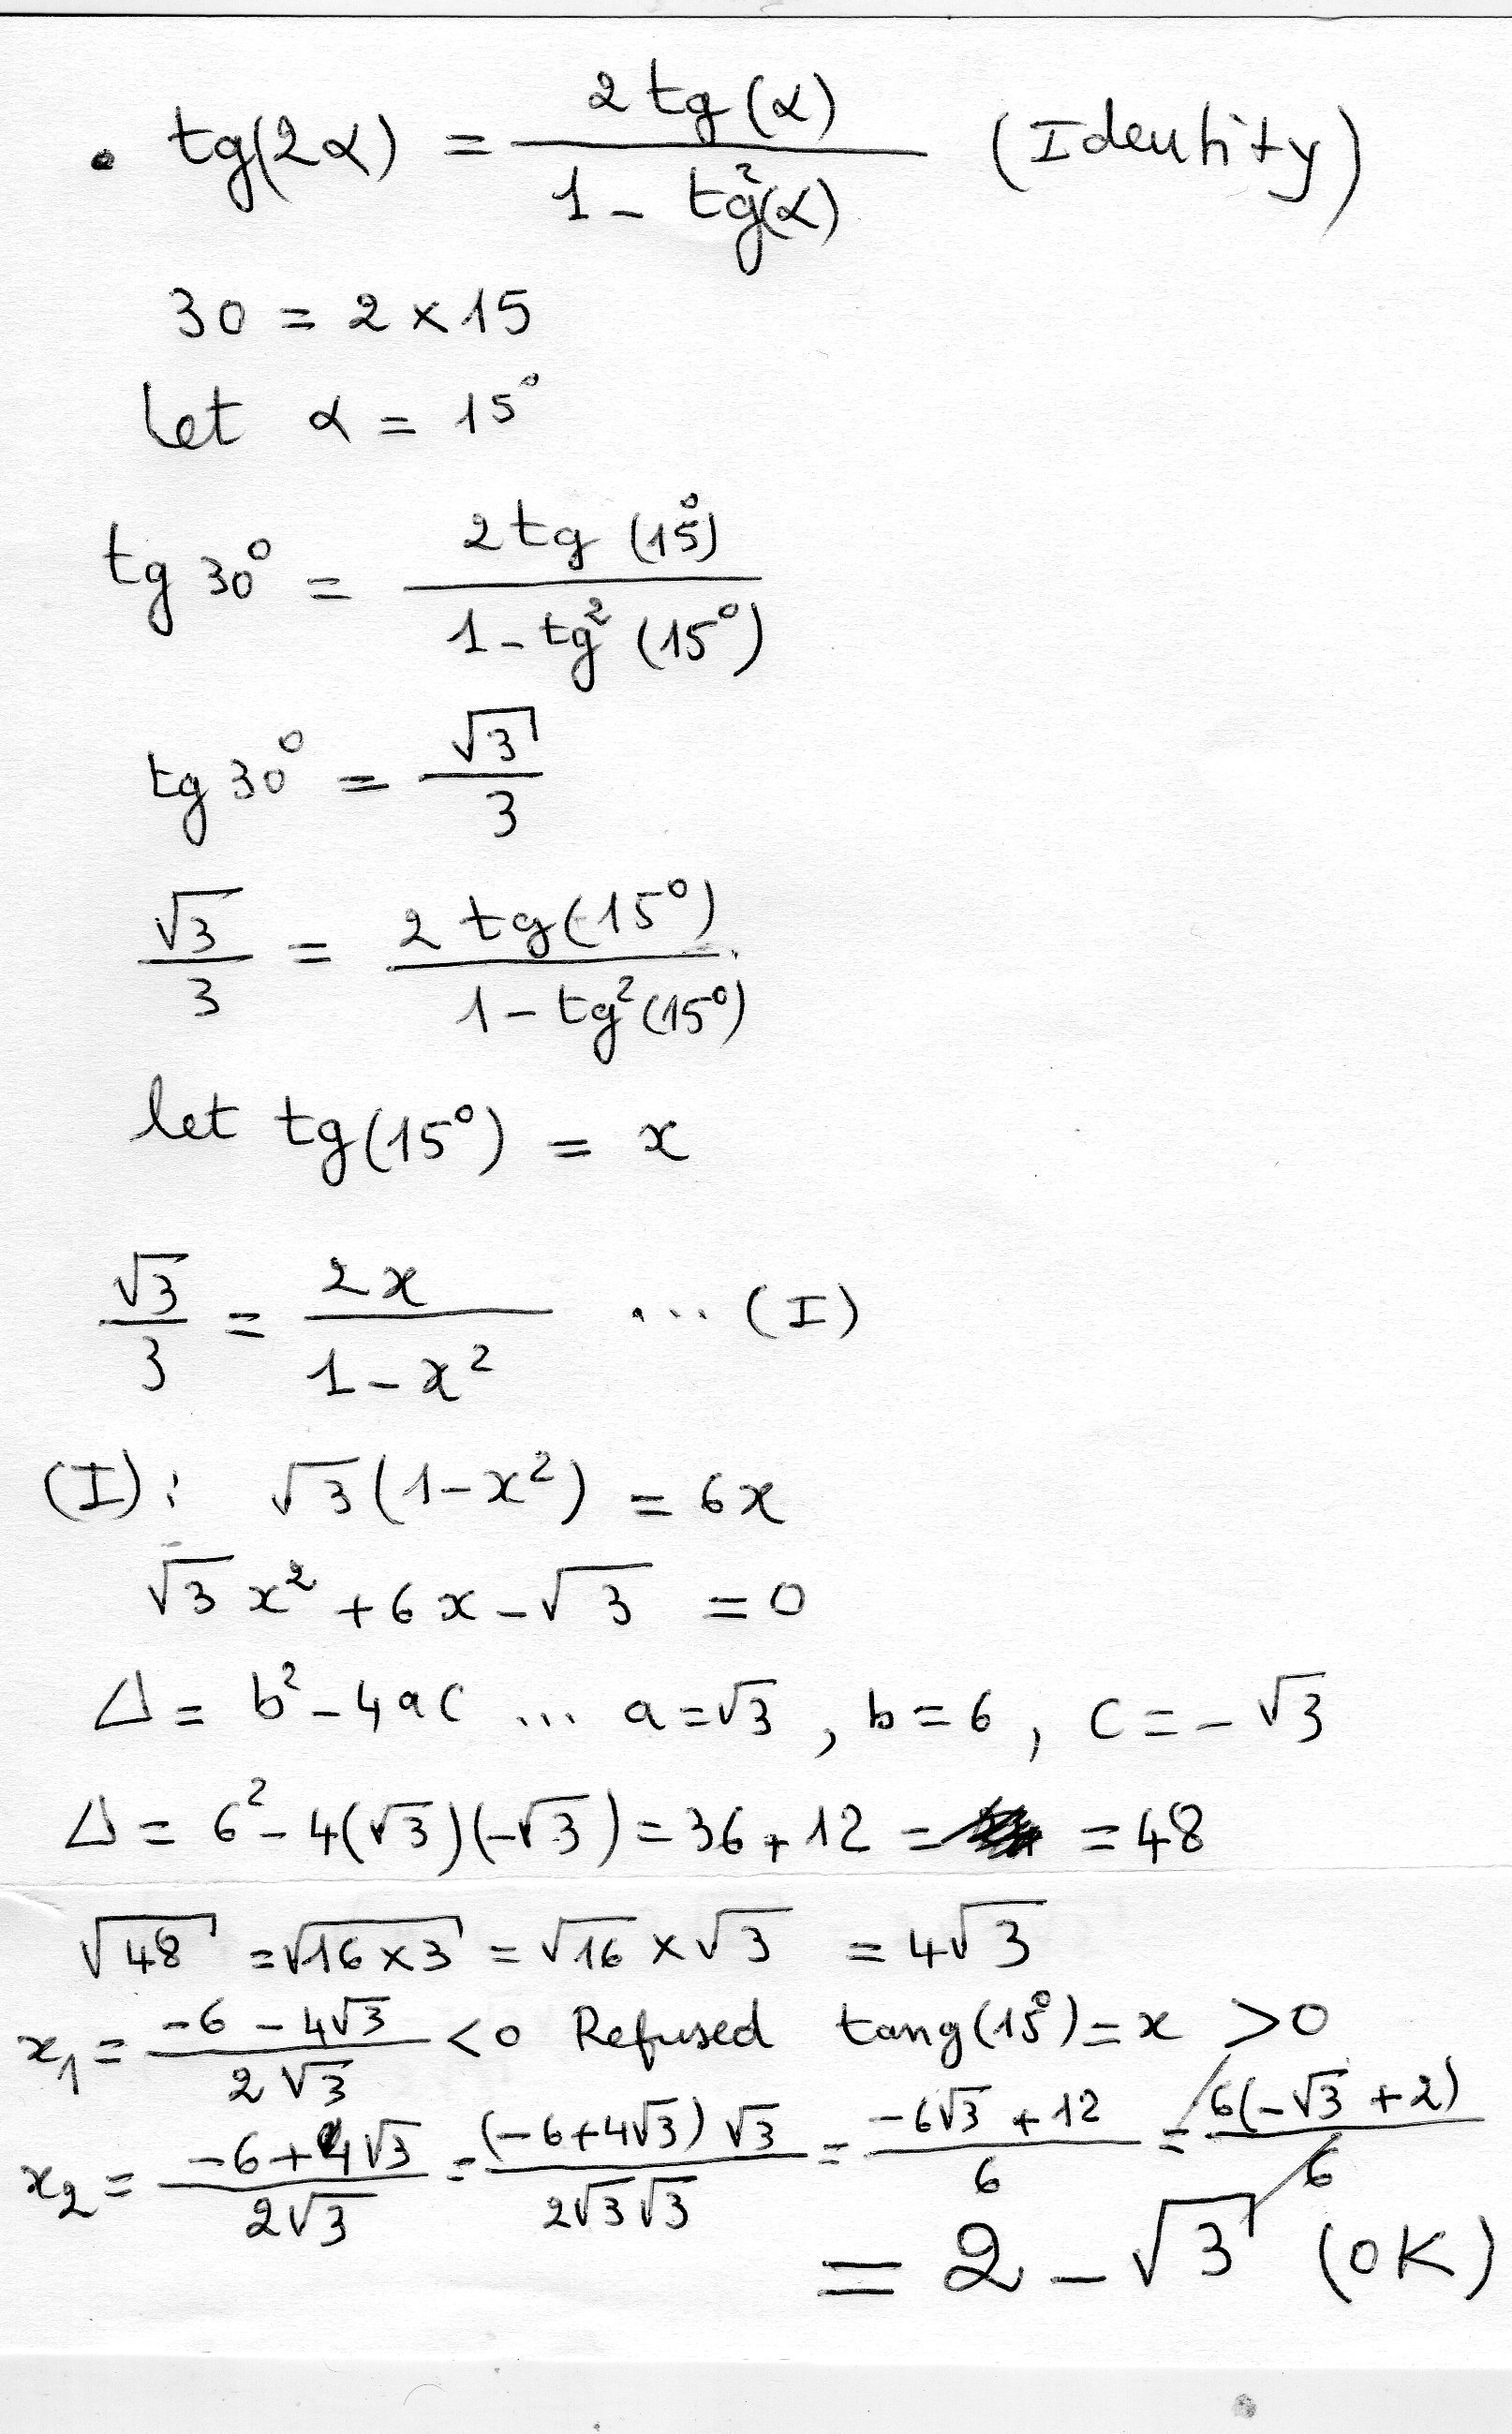 • tg(2α) = 2 tg(α) / 1 - tg²(α) (Identity)
30 = 2 × 15
Let α = 15°
tg 30° = 2 tg (15°) / 1 - tg² (15°)
tg 30° = √3 / 3
√3 / 3 = 2 tg(15°) / 1 - tg²(15°)
let tg(15°) = x
√3 / 3 = 2x / 1 - x² ... (I)
(I): √3 (1 - x²) = 6x
√3 x² + 6x - √3 = 0
Δ = b² - 4ac ... a = √3, b = 6, c = - √3
Δ = 6² - 4(√3)(-√3) = 36 + 12 = = 48
√48 = √16 × 3 = √16 × √3 = 4√3
x₁ = -6 - 4√3 / 2√3 < 0 Refused tang(15°) = x > 0
x₂ = -6 + 4√3 / 2√3 = (-6 + 4√3) √3 / 2√3 √3 = -6√3 + 12 / 6 = 6(-√3 + 2) / 6
= 2 - √3 (OK)